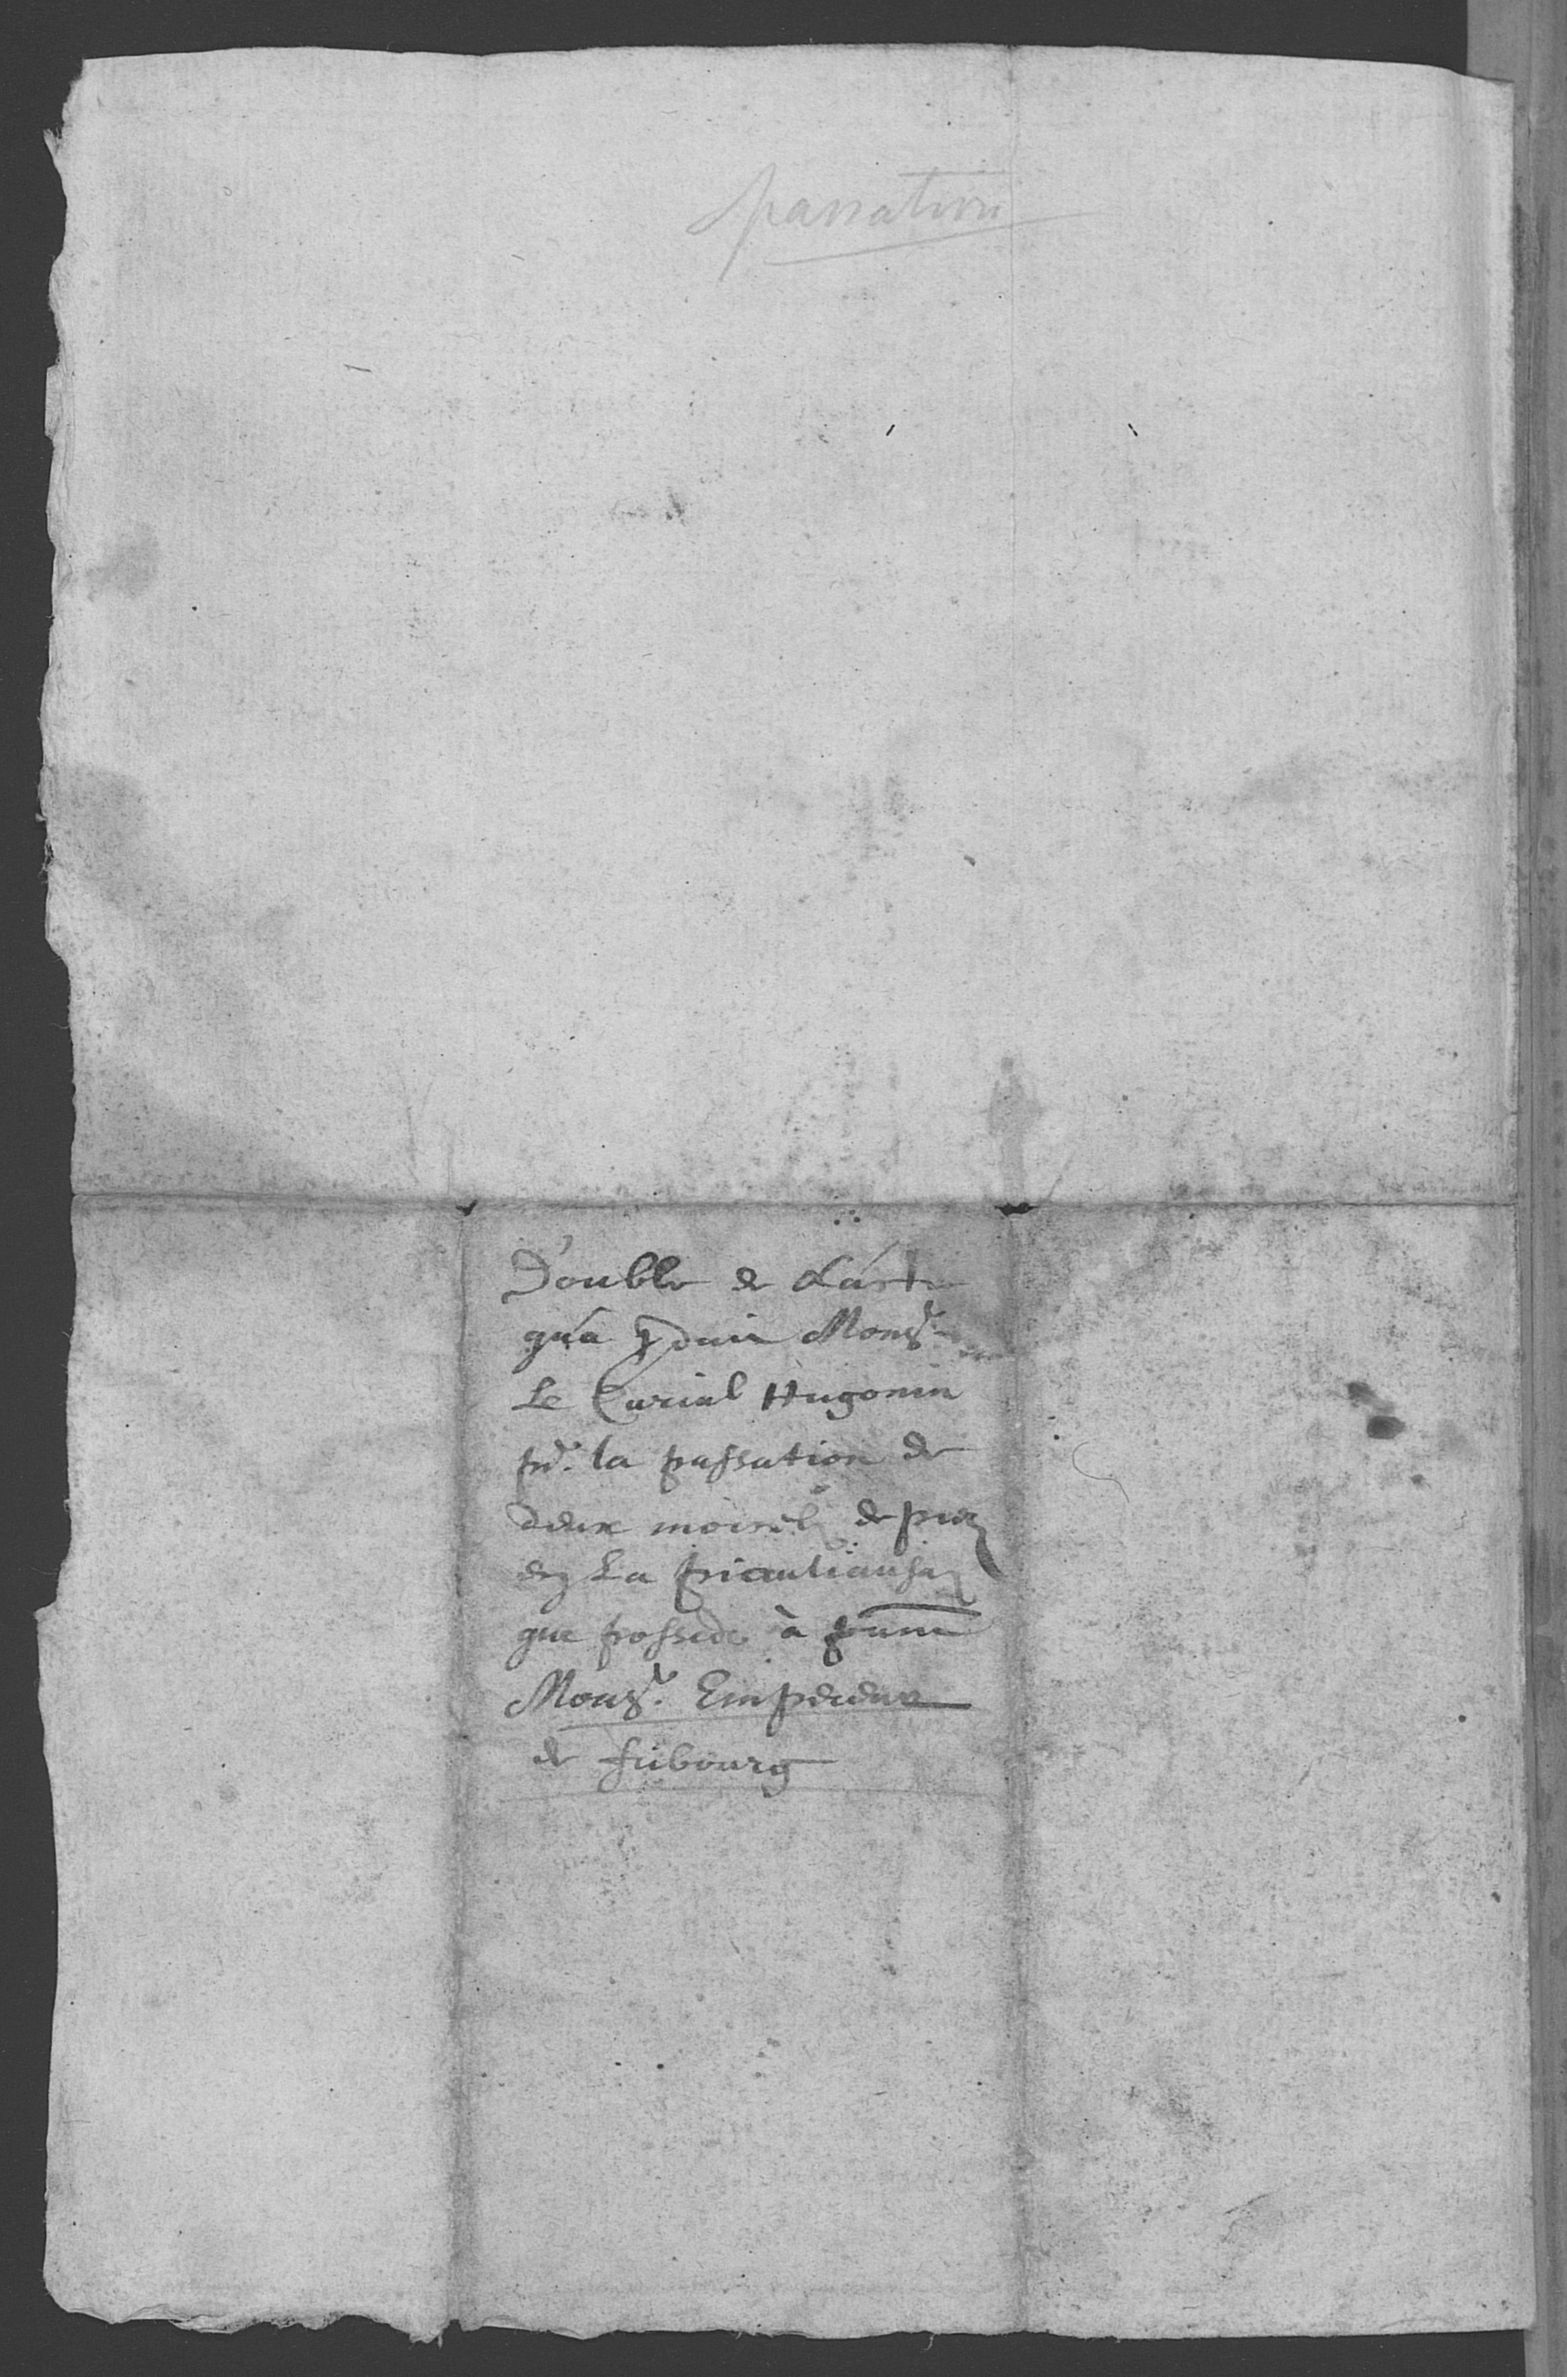 passation
Double de L'acte
qu'a produit Mons.r
Le Curial Hugonin
pr. la passation de
deux morcels de prez
en La
que possede à
Mons.r Empereur
de fribourg